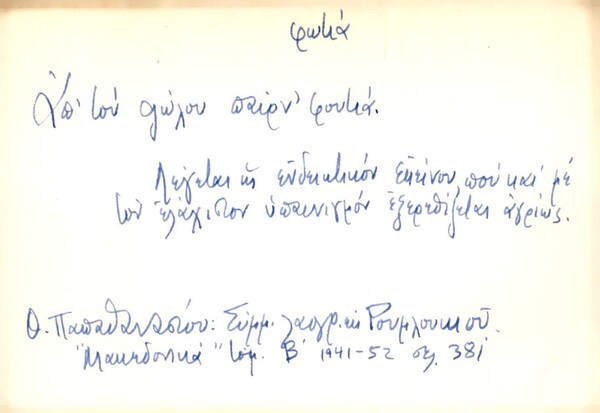 φωτιά
Ἀπ' τοὺ κώλου παίρν' φουτιά.
Λέγεται ὡς ἐνδεικτικόν ἐκείνου, πού καί μέ
τόν ἐλάχιστον ὑπαινιγμόν ἐξερεθίζεται ἀγρίως.
Θ. Παπαθανασίου: Σύμμ. λαογρ. ἐκ Ρουμλουκιοῦ.
"Μακεδονικά" τόμ. Β' 1941-52 σελ. 381